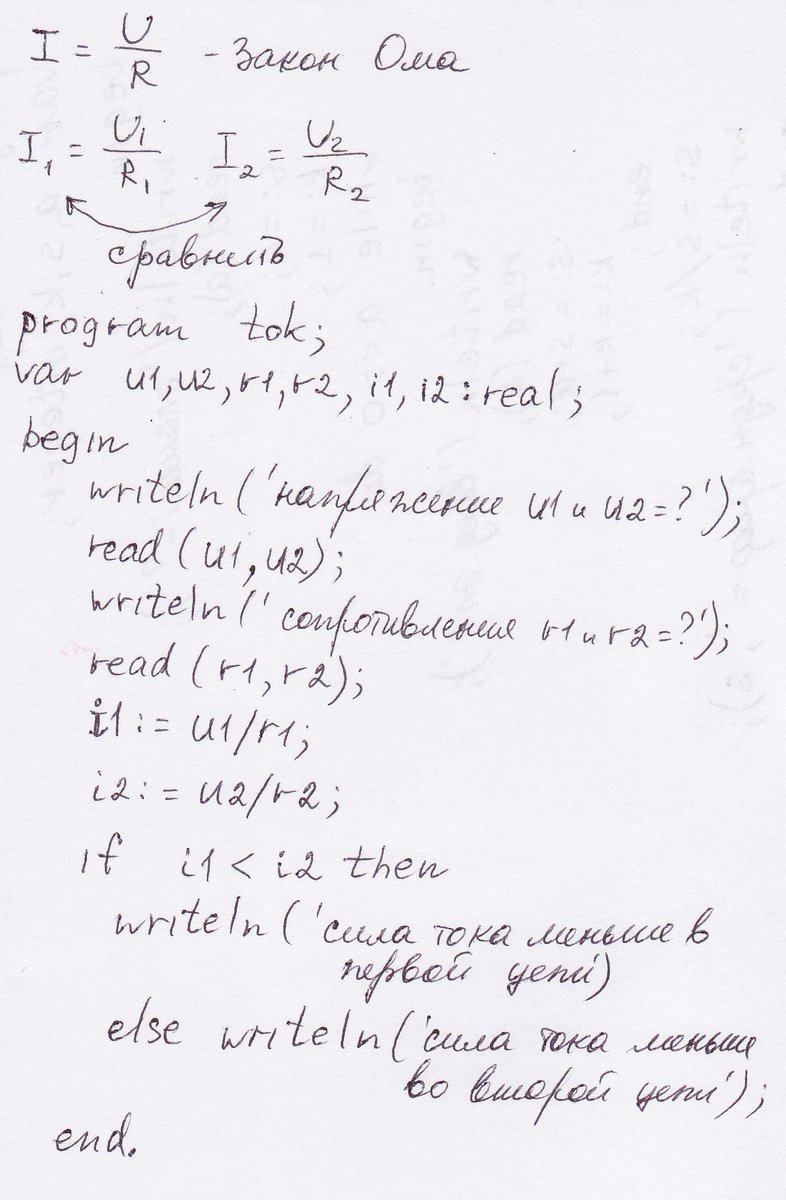 I = U/R - Закон Ома
I₁ = U₁/R₁ I₂ = U₂/R₂
сравнить
program tok;
var u1, u2, r1, r2, i1, i2 : real;
begin
writeln ('напряжение u1 и u2 = ?');
read (u1, u2);
writeln (' сопротивления r1 и r2 = ?');
read (r1, r2);
i1 := u1/r1;
i2 := u2/r2;
if i1 < i2 then
writeln ('сила тока меньше в
первой цепи')
else writeln ('сила тока меньше
во второй цепи');
end.